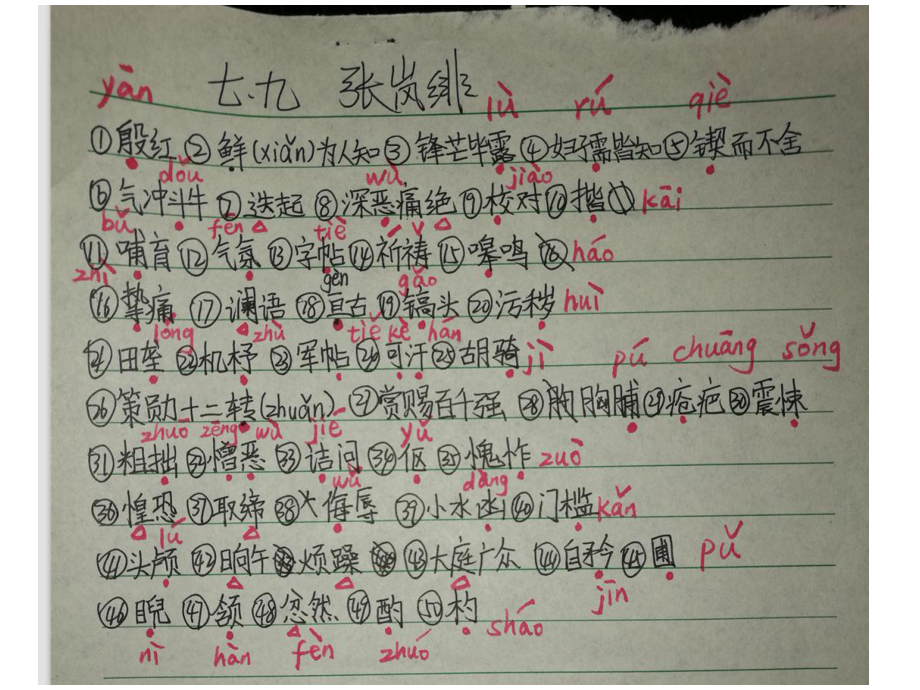 七.九 张岚绯
yān lù rú qiè
①殷红 ②鲜(xiǎn)为人知 ③锋芒毕露 ④妇孺皆知 ⑤锲而不舍
dǒu wù jiào
⑥气冲斗牛 ⑦迭起 ⑧深恶痛绝 ⑨校对 ⑩揩 kāi
bǔ fēn tiè
⑪哺育 ⑫气氛 ⑬字帖 ⑭祈祷 ⑮嗥鸣 háo
zhì gèn gǎo
⑯挚痛 ⑰谰语 ⑱亘古 ⑲镐头 ⑳污秽 huì
lǒng zhù tiě kè hán
㉑田垄 ㉒机杼 ㉓军帖 ㉔可汗 ㉕胡骑 jì pú chuāng sǒng
㉖策勋十二转(zhuǎn) ㉗赏赐百千强 ㉘胸脯 ㉙疮疤 ㉚震悚
zhuō zēng wù jié yǔ
㉛粗拙 ㉜憎恶 ㉝诘问 ㉞伛 ㉟愧怍 zuò
wǔ dàng
㊱惶恐 ㊲取缔 ㊳侮辱 ㊴小水凼 ㊵门槛 kǎn
lú
㊶头颅 ㊷晌午 烦躁 ㊸大庭广众 ㊹自矜 ㊺圃 pǔ
jīn
㊻睨 ㊼颔 ㊽忿然 ㊾酌 ㊿杓 sháo
nì hàn fèn zhuó